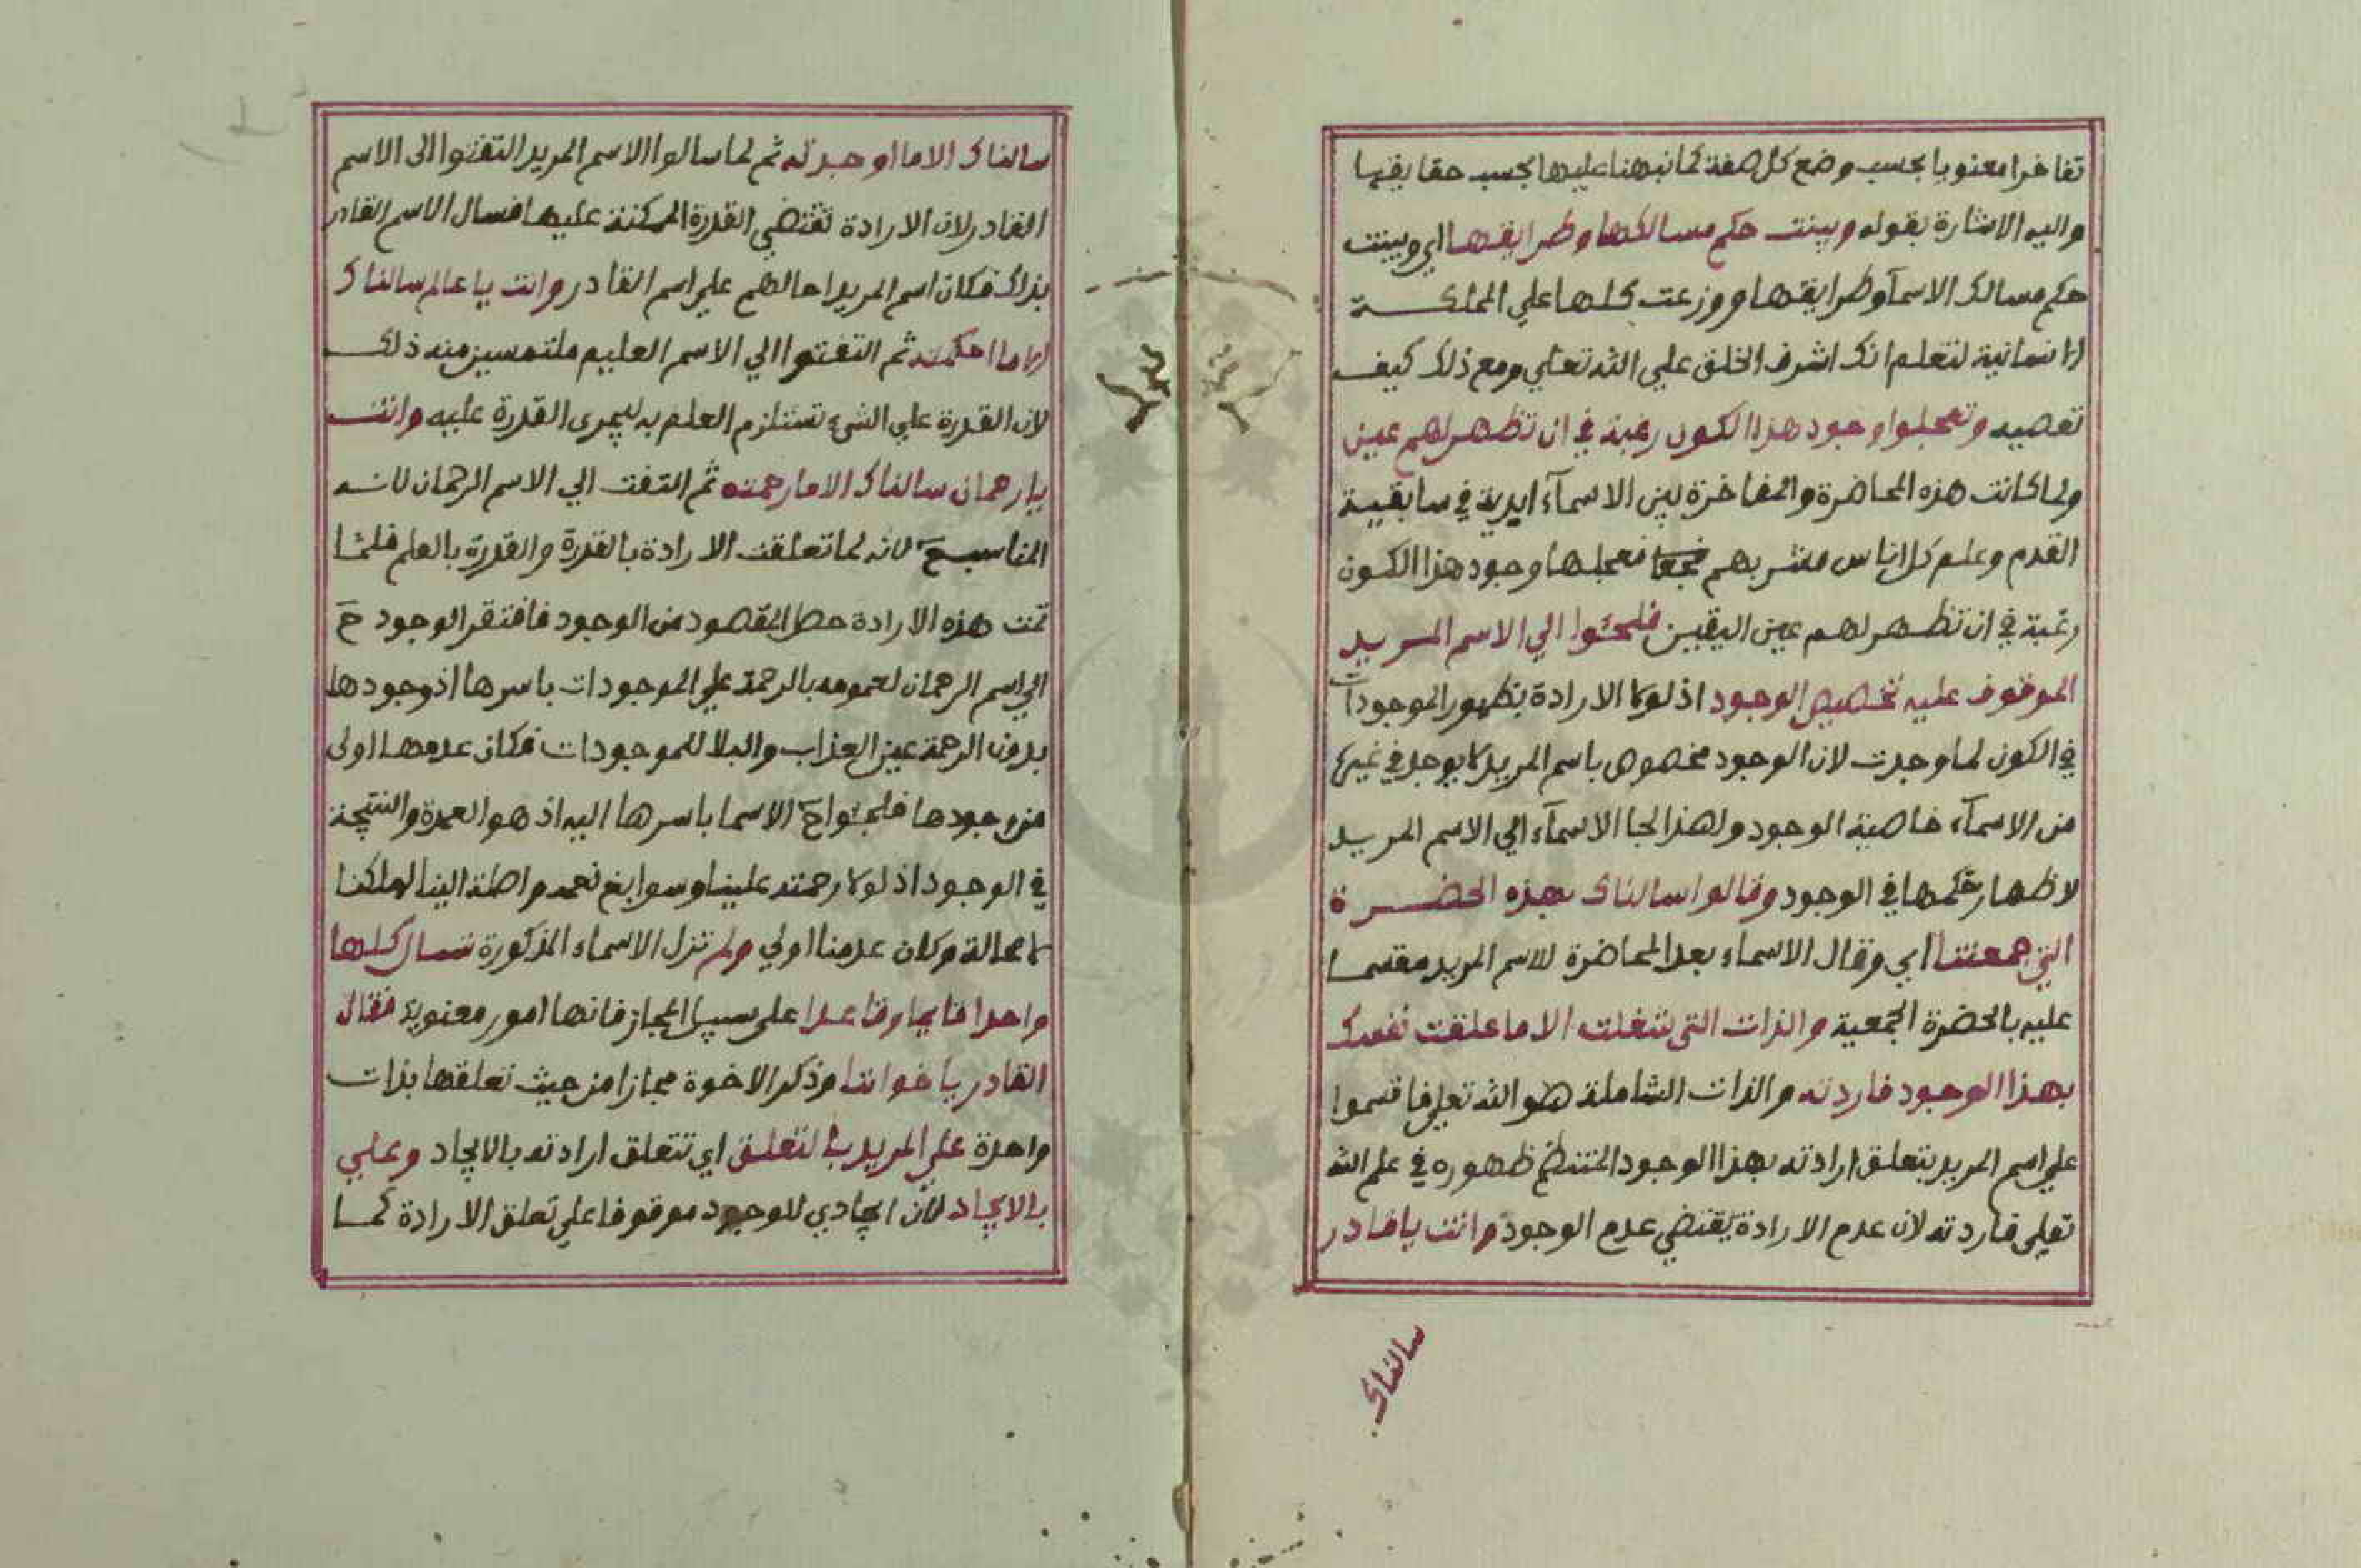 تفاخرا معنويا بحسب وضع كل صفة كما نبهنا عليها بحسب حقايقها
واليه الاشارة بقوله وبينت حكم مسالكها وطرايقها اي وبينت
حكم مسالك الاسمآ وطرايقها ووزعت كلها علي المملكة
الانسانية لتعلم انك اشرف الخلق علي الله تعلي ومع ذلك كيف
تعصيه وتعجلوا وجود هذا الكون رغبة في ان تظهر لهم عين
ولما كانت هذه المحاضرة والمفاخرة بين الاسمآء ابدية في سابقية
القدم وعلم كل اناس مشربهم فعجلها وجود هذا الكون
رغبة في ان تظهر لهم عين اليقين فلجئوا الي الاسم المريد
الموقوف عليه تخصيص الوجود اذ لولا الارادة بظهور الموجودات
في الكون لما وجدت لان الوجود مخصوص باسم المريد لا يوجد في غيره
من الاسمآء خاصية الوجود ولهذا لجا الاسمآء الي الاسم المريد
لاظهار حكمها في الوجود وقالوا سالناك بهذه الحضرة
التي جمعتنا اي وقال الاسماء بعد المحاضرة للاسم المريد مقسما
عليه بالحضرة الجمعية والذات التي شغلت الا ما علقت نفسك
بهذا الوجود فاردته والذات الشاملة هو الله تعلي فاقسموا
علي اسم المريد بتعلق ارادته بهذا الوجود المنتظم ظهوره في علم الله
تعلي فاردته لان عدم الارادة يقتضي عدم الوجود وانت يا قادر
سالناك
سالناك الا ما اوجدته ثم لما سالوا الاسم المريد التفتوا الى الاسم
القادر لان الارادة تقتضي القدرة الممكنة عليها فسال الاسم القادر
بذلك فكان اسم المريد احالهم علي اسم القادر وانت يا عالم سالناك
الا ما احكمته ثم التفتوا الي الاسم العليم ملتمسين منه ذلك
لان القدرة علي الشيء تستلزم العلم به ليجرى القدرة عليه وانت
يا رحمان سالناك الا ما رحمته ثم التفت الي الاسم الرحمان لانه
المناسب ح لانه لما تعلقت الارادة بالقدرة والقدرة بالعلم فلما
تمت هذه الارادة حط المقصود من الوجود فافتقر الوجود ح
الي اسم الرحمان لعمومه بالرحمة علي الموجودات باسرها اذ وجودها
بدون الرحمة عين العذاب والبلا للموجودات فكان عدمها اولى
من وجودها فلجئوا ح الاسما باسرها اليه اذ هو العمدة والنتيجة
في الوجود اذ لولا رحمته علينا وسوابغ نعمه واصلة الينا لهلكنا
لا محالة وكان عدمنا اولي ولم تزل الاسماء المذكورة تسال كلها
واحدا قايما وقاعدا على سبيل المجاز فانها امور معنوية فقال
القادر يا خواننا وذكر الاخوة مجازا من حيث تعلقها بذات
واحدة علي المريد بالتعلق اي تتعلق ارادته بالايجاد وعلي
بالايجاد لان ايجادي للوجود موقوفا علي تعلق الارادة كما